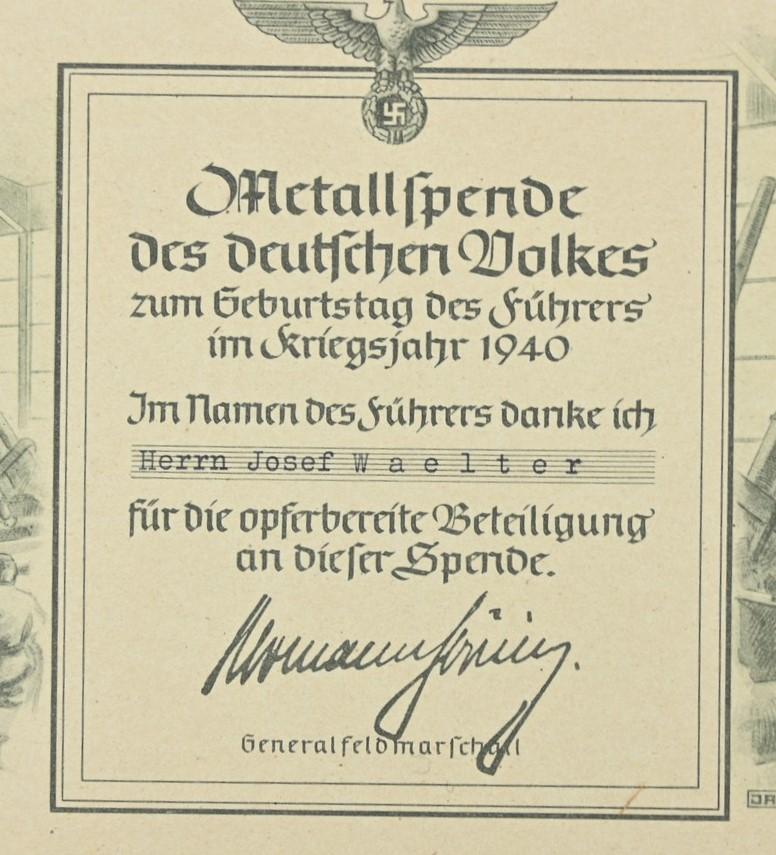 Metallspende
des deutschen Volkes
zum Geburtstag des Führers
im Kriegsjahr 1940
Im Namen des Führers danke ich
Herrn Josef Waelter
für die opferbereite Beteiligung
an dieser Spende.
Hermann Göring.
Generalfeldmarschall